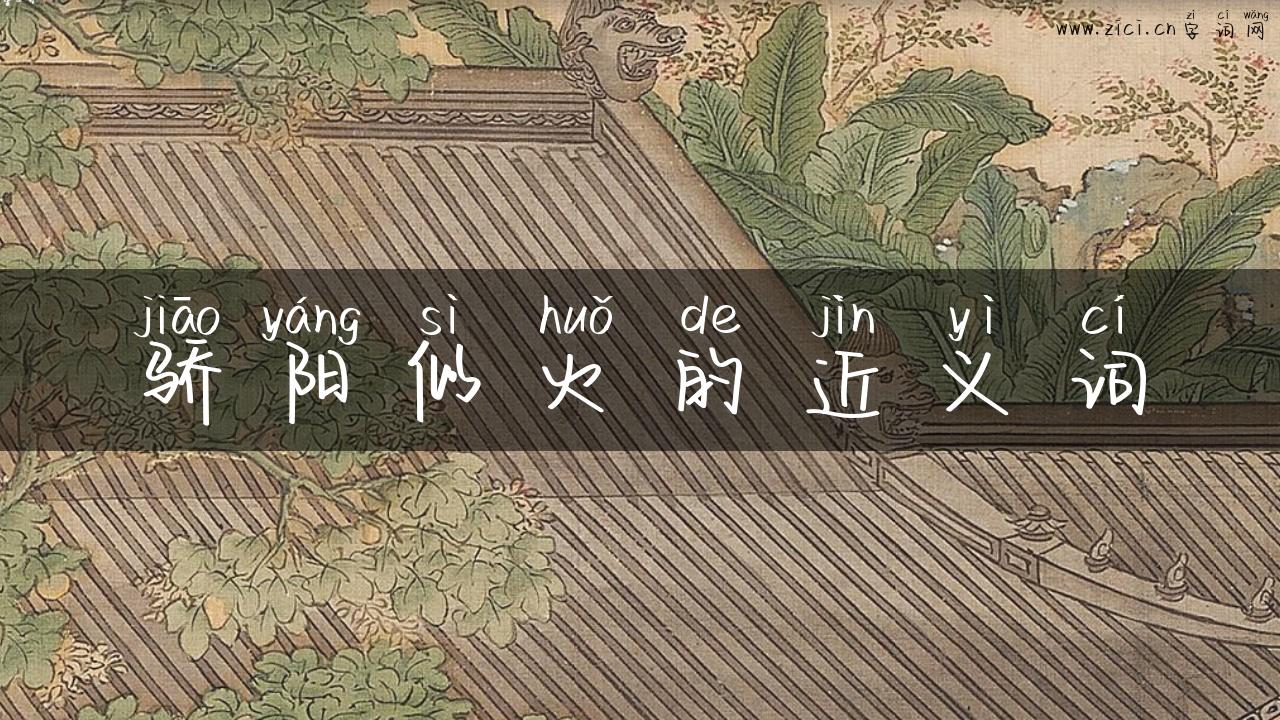 zì cí wǎng
www.zici.cn 字词网
jiāo yáng sì huǒ de jìn yì cí
骄阳似火的近义词